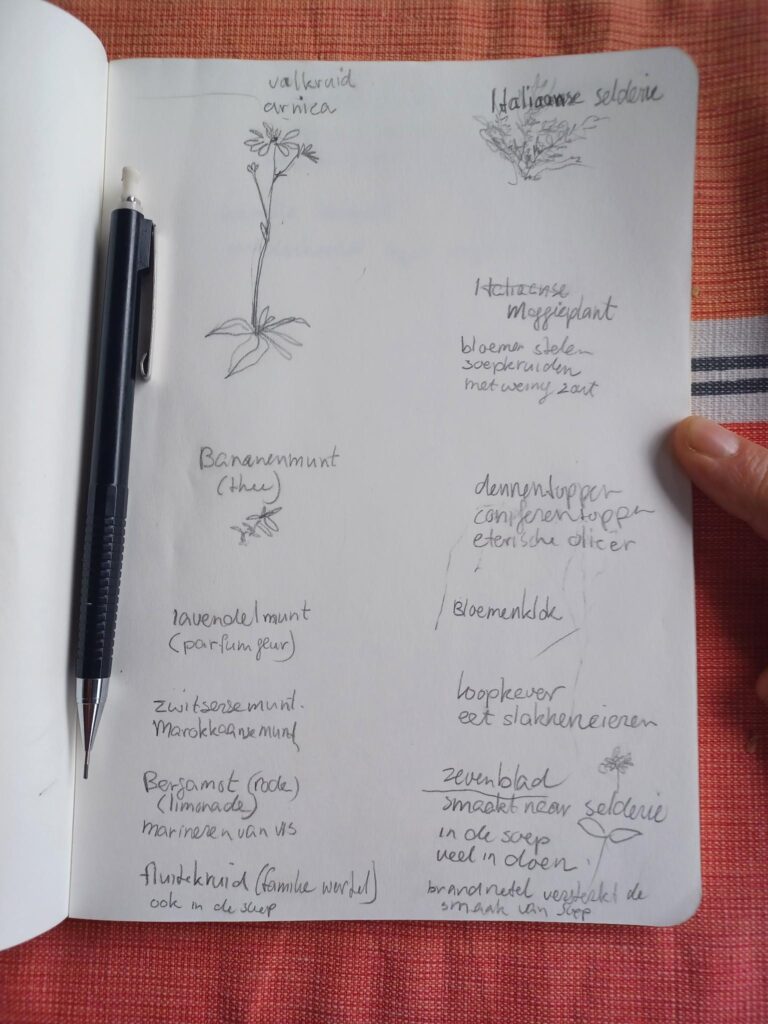 valkruid
arnica
Bananenmunt
(thee)
lavendelmunt
(parfumgeur)
zwitserse munt.
Marokkaanse munt
Bergamot (rode)
(limonade)
marineren van vis
fluitekruid (familie wortel)
ook in de soep
Italiaanse selderie
Italiaanse
Maggieplant
bloemen stelen
soepkruiden
met weinig zout
dennentoppen
coniferentoppen
eterische oliën
Bloemenklok
loopkever
eet slakkeneieren
zevenblad
smaakt naar selderie
in de soep
veel in doen.
brandnetel versterkt de
smaak van soep